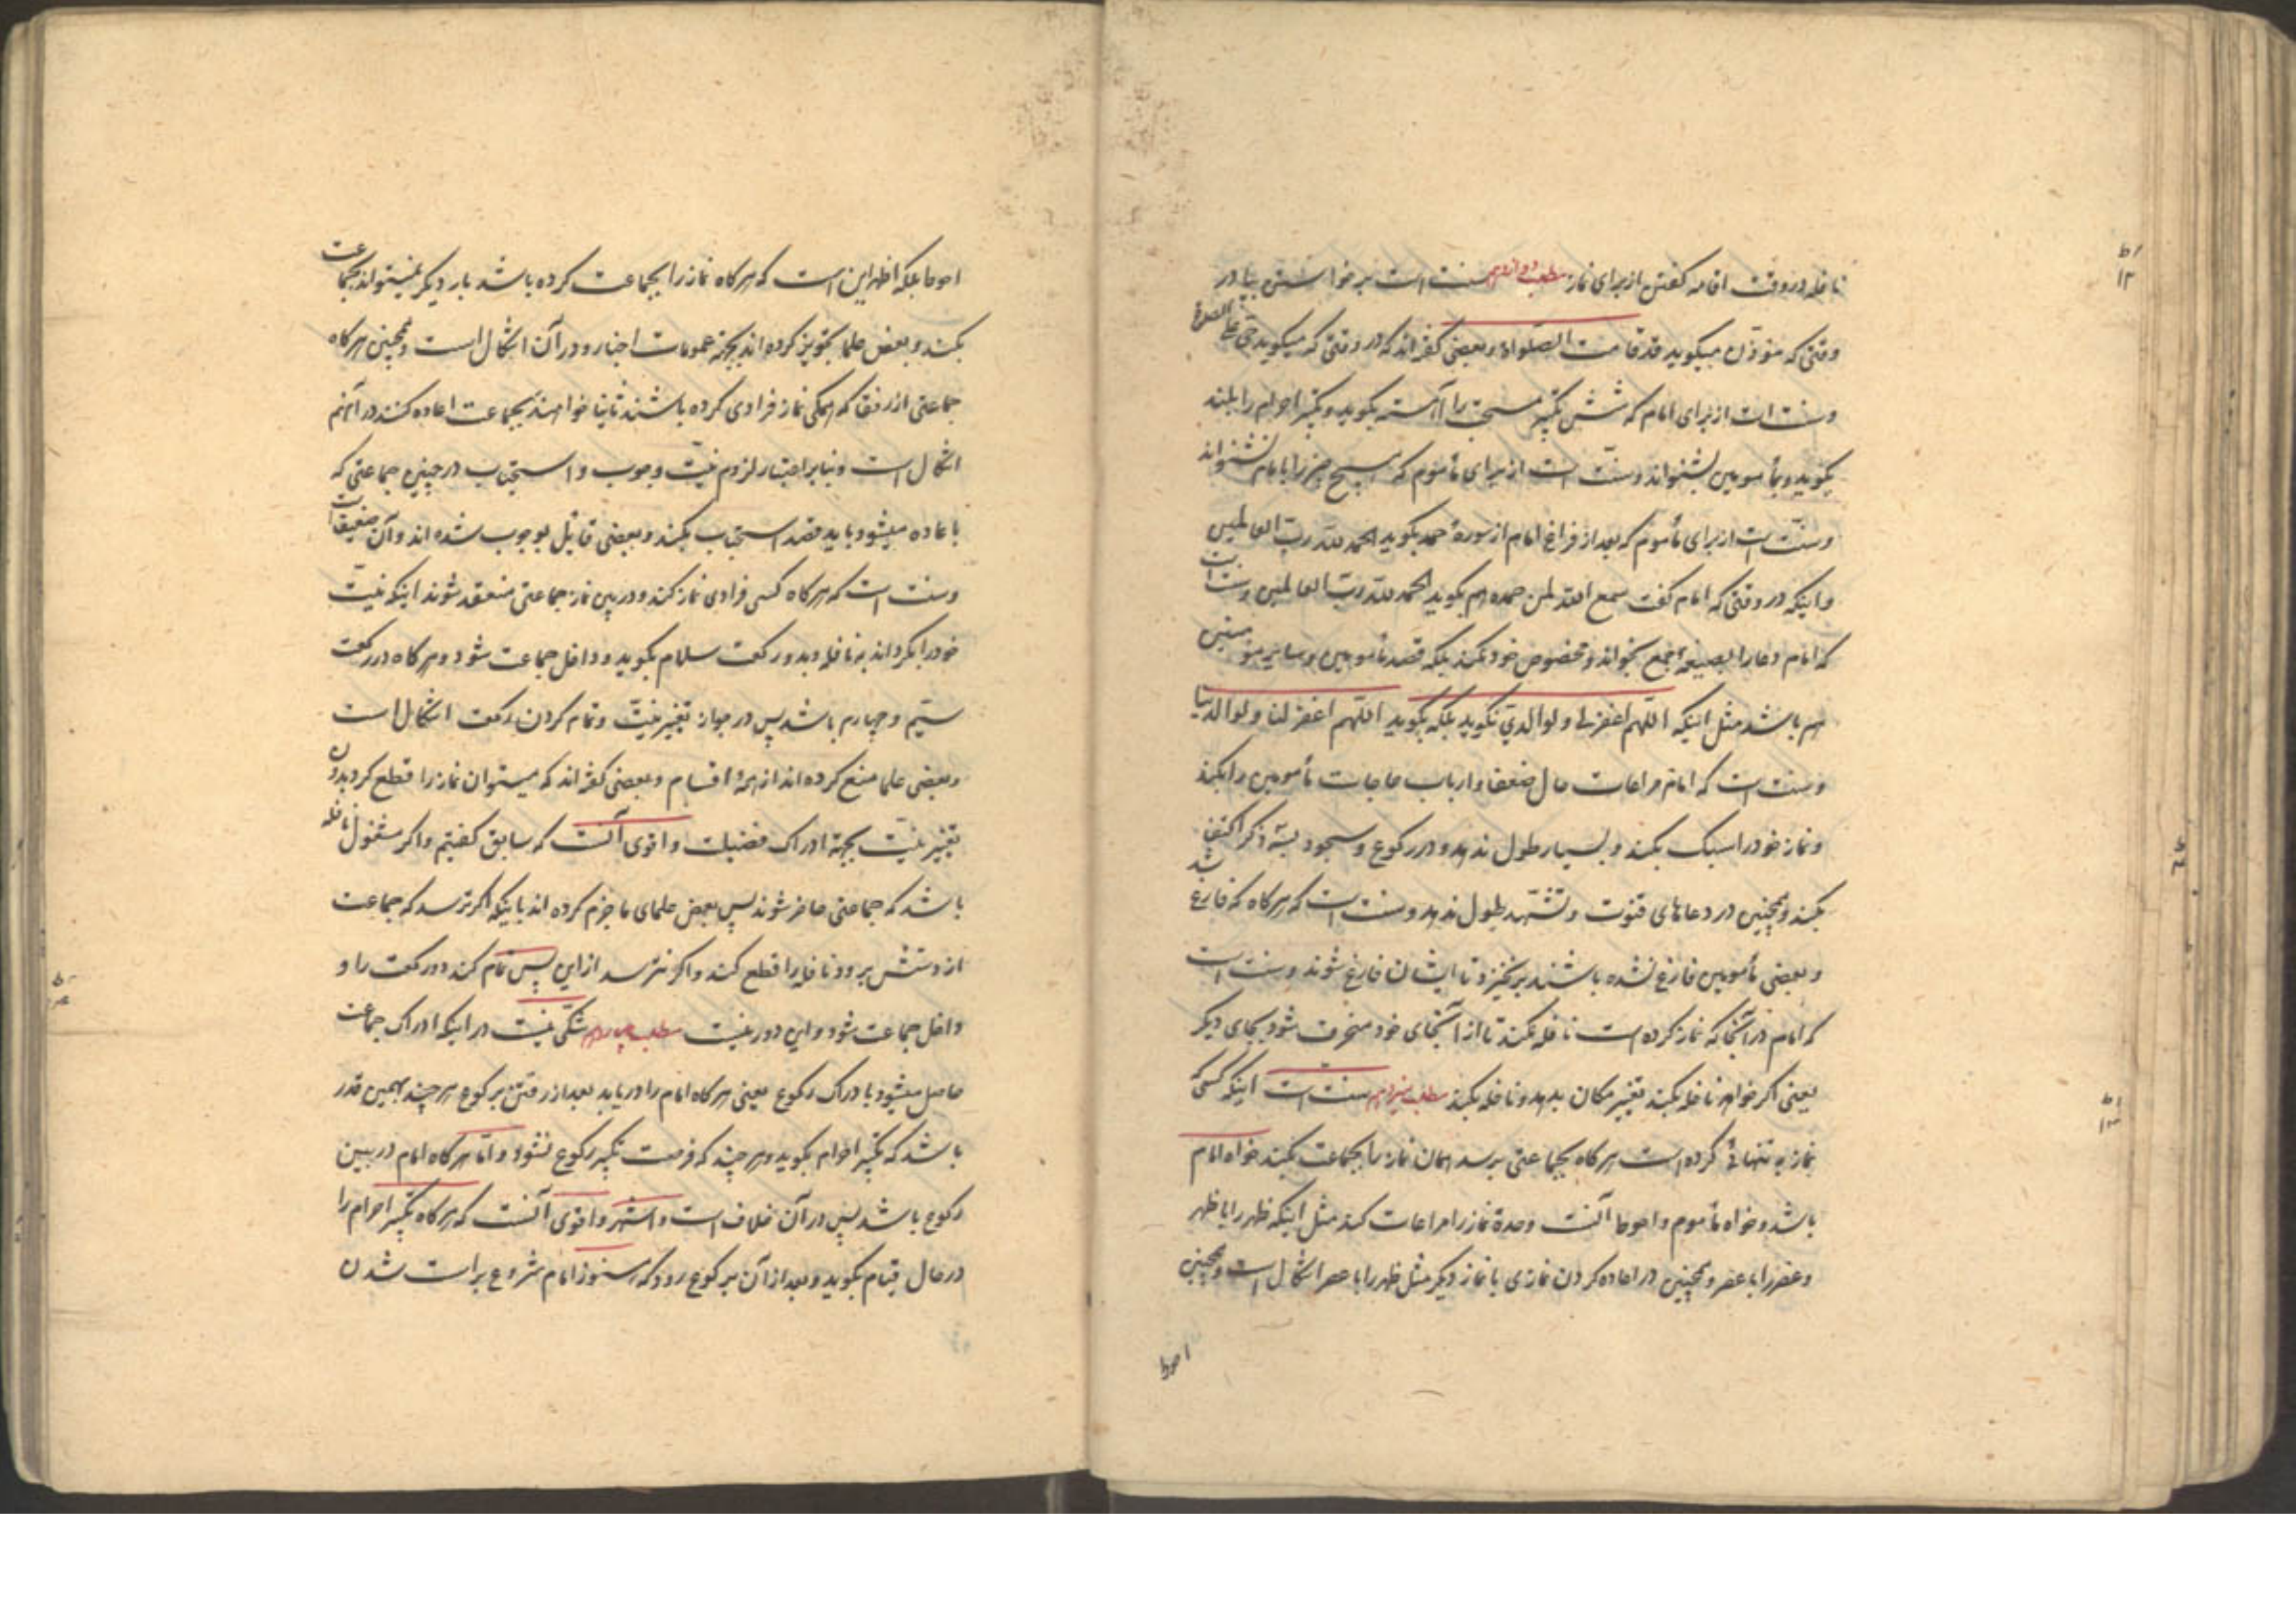 نافله در وقت اقامه گفتن از برای نماز مطلب دوازدهم سنت است برخواستن بپا در
وقتی که مؤذن میگوید قد قامت الصلواة و بعضی گفته‌اند که در وقتی که میگوید حی علی الصلوة
و سنت است از برای امام که شش تکبیر مستحب را آهسته بگوید و تکبیر احرام را بلند
بگوید و بمأمومین بشنواند و سنت است از برای مأموم که هیچ چیز را بامام نشنواند
و سنّت است از برای مأموم که بعد از فراغ امام از سورهٔ حمد بگوید الحمد للّه ربّ العالمین
و اینکه در وقتی که امام گفت سمع اللّه لمن حمده هم بگوید الحمد للّه ربّ العالمین و سنت است
که امام دعا را بصیغهٔ جمع بخواند و مخصوص خود نکند بلکه قصد مأمومین و سایر مؤمنین
هم باشد مثل اینکه اللّهم اغفر لی و لوالدیّ نگوید بلکه بگوید اللّهم اغفر لنا و لوالدینا
و سنت است که امام مراعات حال ضعفا و ارباب حاجات مأمومین را بکند
و نماز خود را سبک بکند و بسیار طول ندهد و در رکوع و سجود بسه ذکر اکتفا
بکند و همچنین در دعاهای قنوت و تشهّد طول ندهد و سنت است که هر گاه که فارغ شد
و بعضی مأمومین فارغ نشده باشند برنخیزد تا ایشان فارغ شوند و سنت است
که امام در آنجا که نماز کرده است نافله نکند تا از آنجای خود منحرف شود بجای دیگر
یعنی اگر خواهد نافله بکند تغییر مکان بدهد و نافله بکند مطلب سیزدهم سنت است اینکه کسی که
نماز به تنهائی کرده است هر گاه بجماعتی برسد همان نماز را بجماعت بکند خواه امام
باشد و خواه مأموم و احوط آنست وحدة نماز را مراعات کند مثل اینکه ظهر را با ظهر
و عصر را با عصر و همچنین در اعاده کردن نمازی با نماز دیگر مثل ظهر را با عصر اشکال است و همچنین
احوط
احوط بلکه اظهر این است که هر گاه نماز را بجماعت کرده باشد بار دیگر نمیتواند بجماعت
بکند و بعض علما تجویز کرده‌اند بجهة عمومات اخبار و در آن اشکال است و همچنین هر گاه
جماعتی از رفقا که همگی نماز فرادی کرده باشند ثانیا خواهند بجماعت اعاده کنند در آنهم
اشکال است و بنابر اعتبار لزوم نیّت وجوب و استحباب در چنین جماعتی که
باعاده میشود باید قصد استحباب بکند و بعضی قایل بوجوب شده‌اند و آن ضعیف است
و سنت است که هر گاه کسی فرادی نماز کند و در بین نماز جماعتی منعقد شوند اینکه نیّت
خود را بگرداند به نافله و بدو رکعت سلام بگوید و داخل جماعت شود و هر گاه در رکعت
سیّم و چهارم باشد پس در جواز تغییر نیّت و تمام کردن رکعت اشکال است
و بعضی علما منع کرده‌اند از همهٔ اقسام و بعضی گفته‌اند که میتوان نماز را قطع کرد بدون
تغییر نیّت بجهة ادراک فضیلت و اقوی آنست که سابق گفتیم و اگر مشغول نافله
باشد که جماعتی حاضر شوند پس بعض علمای ما جزم کرده‌اند باینکه اگر ترسد که جماعت
از دستش برود نافله را قطع کند و اگر نترسد از این پس تمام کند دو رکعت را و
داخل جماعت شود و این دور نیست مطلب چهاردهم شکّی نیست در اینکه ادراک جماعت
حاصل میشود بادراک رکوع یعنی هر گاه امام را دریابد بعد از رفتن برکوع هر چند بهمین قدر
باشد که تکبیر احرام بگوید و هر چند که فرصت تکبیر رکوع نشود و امّا هر گاه امام در بین
رکوع باشد پس در آن خلاف است و اشهر و اقوی آنست که هر گاه تکبیر احرام را
در حال قیام بگوید و بعد از آن برکوع رود که هنوز امام شروع براست شدن